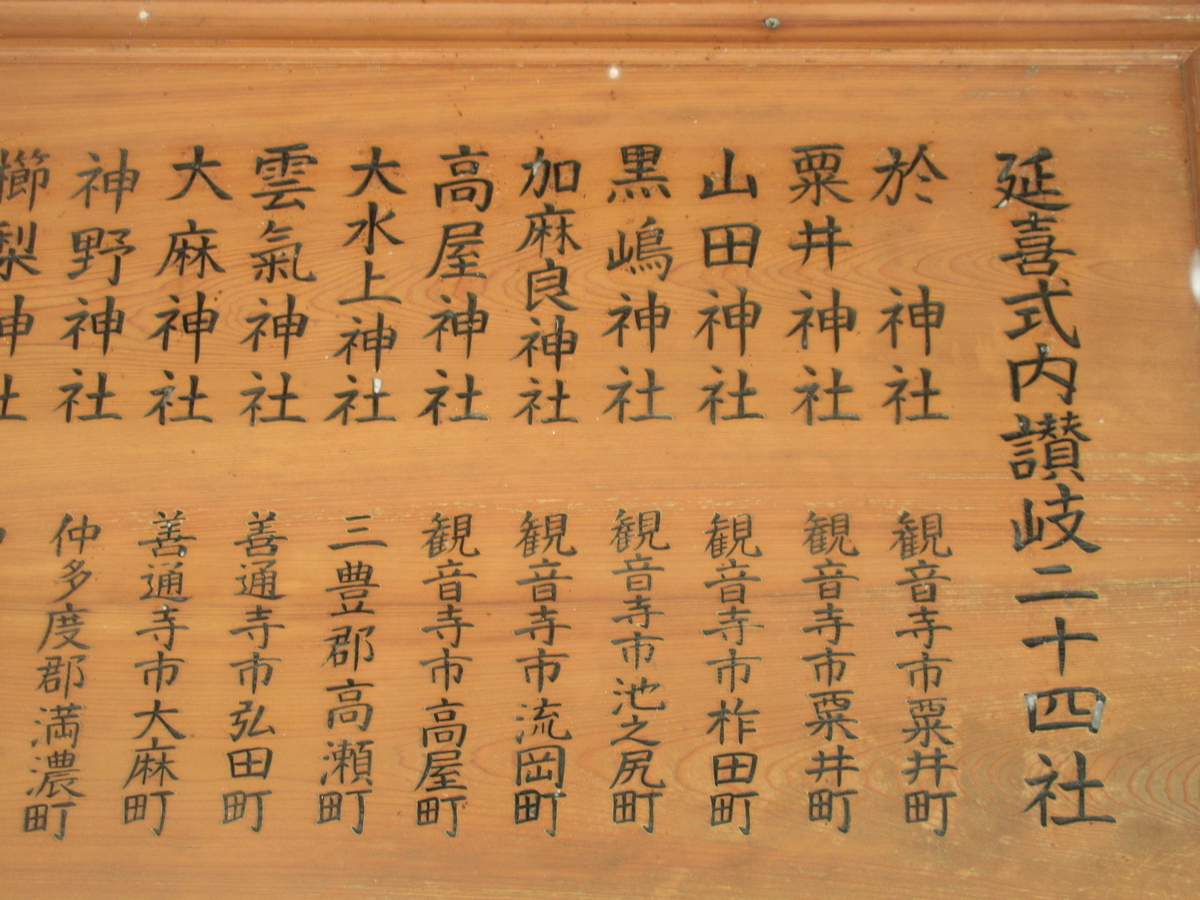 延喜式内讃岐二十四社
於神社 観音寺市粟井町
粟井神社 観音寺市粟井町
山田神社 観音寺市柞田町
黒嶋神社 観音寺市池之尻町
加麻良神社 観音寺市流岡町
高屋神社 観音寺市高屋町
大水上神社 三豊郡高瀬町
雲氣神社 善通寺市弘田町
大麻神社 善通寺市大麻町
神野神社 仲多度郡満濃町
櫛梨神社